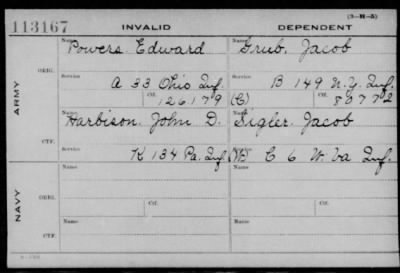 (3-H-5)
113167 INVALID DEPENDENT
ARMY
ORIG.
Name Powers Edward Name Grub, Jacob
Service A 33 Ohio Inf. Service B 149 N.Y. Inf.
Ctf. 126179 (C) Ctf. 80772
CTF.
Name Harbison John D. Name Sigler, Jacob
Service K 134 Pa. Inf. Service (W) C 6 W Va Inf.
NAVY
ORIG.
Name Name
Service Service
Ctf. Ctf.
CTF.
Name Name
Service Service